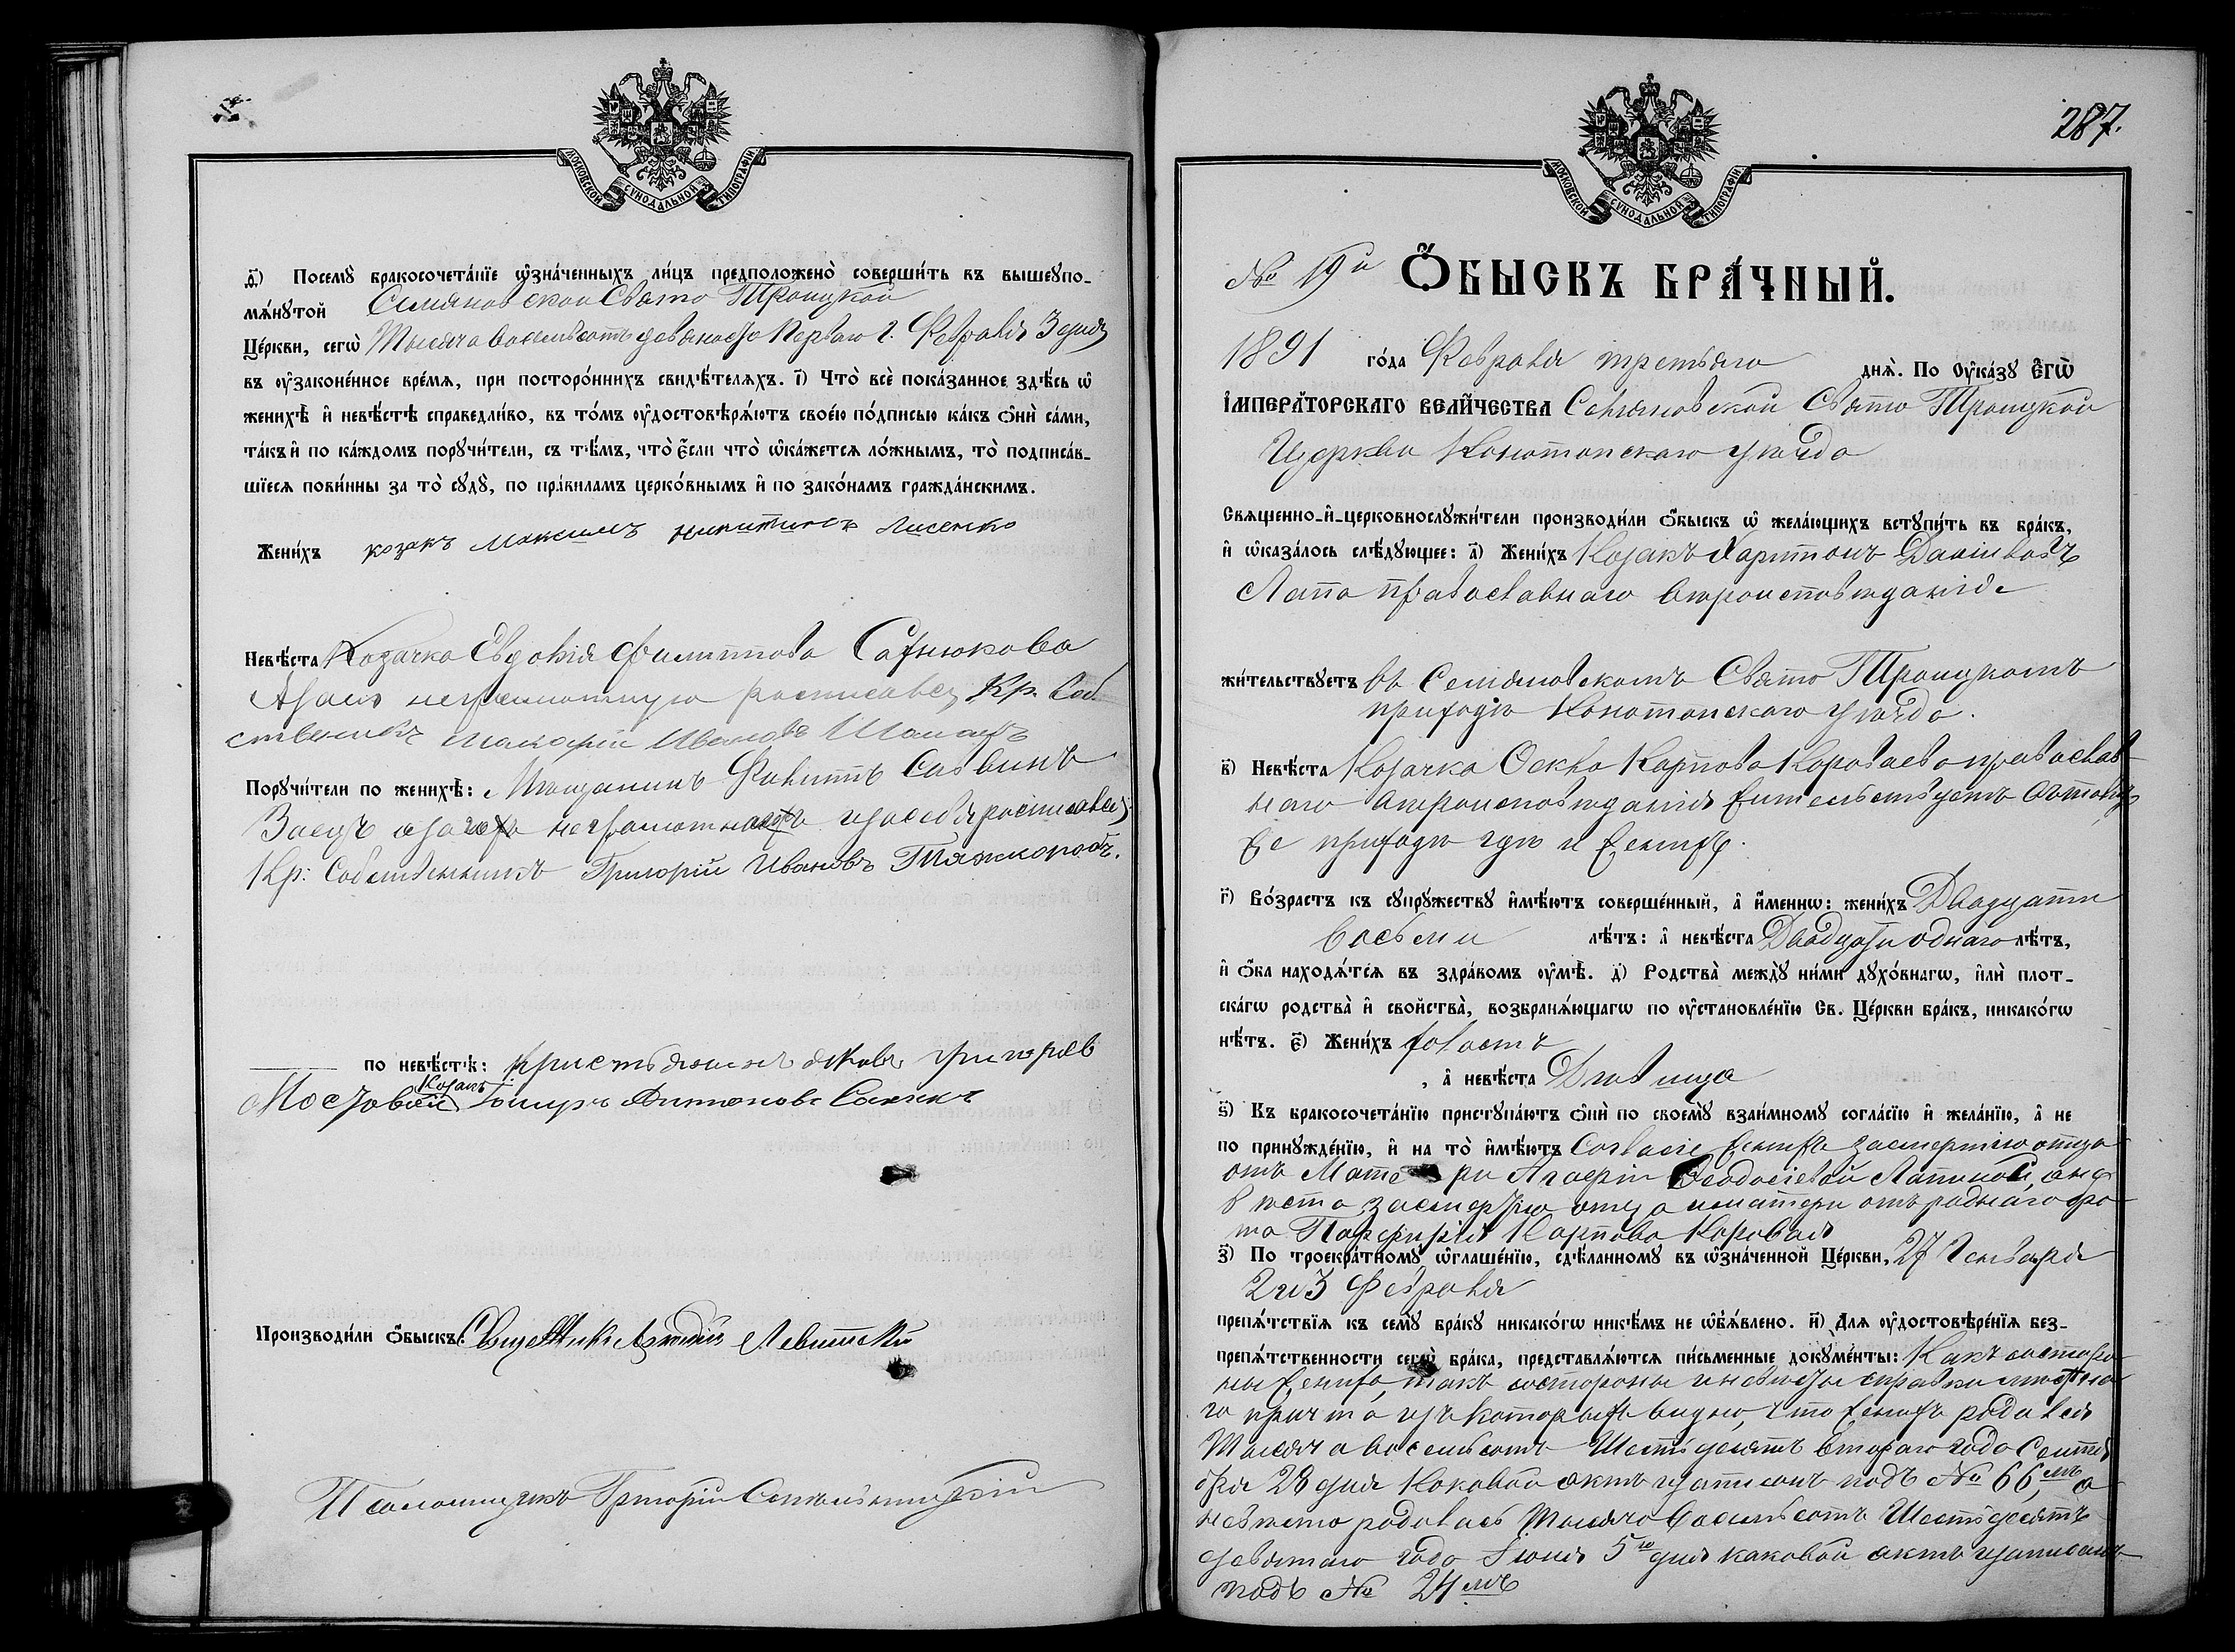 МОСКОВСКОЙ СѴНОДАЛЬНОЙ ТИПОГРАФІИ
д҃) Посемꙋ̀ бракосочета́нїе ѡ҆зна́ченныхъ ли́цъ предположено̀ соверши́ть въ вышеꙋпо-
мѧ́нꙋтой Семяновской Свято Троицкой
Це́ркви, сегѡ̀ Тысяча восемьсотъ девяносто Перваго г. Февраля 3 дня
въ ᲂу҆законе́нное вре́мѧ, при посторо́ннихъ свидѣ́телѧхъ. і҃) Что̀ всѐ пока́занное здѣ́сь ѡ҆
женихѣ̀ и҆ невѣ́стѣ справедли́во, въ то́мъ ᲂу҆достовѣрѧ́ютъ свое́ю по́дписью ка́къ ѻ҆нѝ са́ми,
та́къ и҆ по ка́ждомъ порꙋчи́тели, съ тѣ́мъ, что̀ є҆́сли что̀ ѡ҆ка́жетсѧ ло́жнымъ, то̀ подписа́в-
шїесѧ пови́нны за то̀ сꙋдꙋ̀, по пра́виламъ церко́внымъ и҆ по зако́намъ гражда́нскимъ.
Жени́хъ козакъ Максимъ Никитинъ Лисенко
Невѣ́ста Козачка Евдокія Филиппова
неграмотную росписався Кр. Соб
ственникъ Иванов
Порꙋчи́тели по женихѣ̀: Мѣщанинъ Филиппъ Саввинъ
Заецъ неграмотнаго и за себя росписався
Кр: Собственникъ Григорій Ивановъ Тяжкоробъ.
по невѣ́стѣ: Кристьянинъ Яковъ Григорев
Мостовой Козакъ Антоновъ
Производи́ли ѻ҆́быскъ: Священникъ Левитскій
Псаломщикъ Григорій
287.
МОСКОВСКОЙ СѴНОДАЛЬНОЙ ТИПОГРАФІИ
№ 19й Ѻ҆́БЫСКЪ БРА́ЧНЫЙ.
1891 го́да Февраля третьяго днѧ̀. По Оу҆ка́зꙋ Є҆гѡ̀
І҆мпера́торскаго Вели́чества Семяновской Свято Троицкой
Церкви Конотопскаго уѣзда
Свѧщенно-и҆-церковнослꙋжи́тели производи́ли ѻ҆́быскъ ѡ҆ жела́ющихъ встꙋпи́ть въ бра́къ,
и҆ ѡ҆каза́лось слѣ́дꙋющее: а҃) Жени́хъ Козакъ Харитонъ Даніиловъ
Лапа православнаго вѣроисповѣданія
жи́тельствꙋетъ въ Семяновскомъ Свято Троицкомъ
приходѣ Конотопскаго уѣзда.
в҃) Невѣ́ста Козачка Фекла Карпова Короваева православ-
наго вѣроисповѣданія жительствуетъ въ томъ
же приходѣ гдѣ и женихъ.
г҃) Во́зрастъ къ сꙋпрꙋ́жествꙋ и҆мѣ́ютъ соверше́нный, а҆ и҆́меннѡ: жени́хъ Двадцати
восьми лѣ́тъ: а҆ невѣ́ста Двадцати однаго лѣ́тъ,
и҆ ѻ҆́ба находѧ́тсѧ въ здра́вомъ ᲂу҆мѣ̀. д҃) Родства̀ междꙋ̀ ни́ми дꙋхо́внагѡ, и҆лѝ плот-
ска́гѡ родства̀ и҆ свойства̀, возбранѧ́ющагѡ по ᲂу҆становле́нїю Св. Це́ркви бра́къ, никако́гѡ
нѣ́тъ. є҃) Жени́хъ холостъ
, а҆ невѣ́ста Дѣвица
ѕ҃) Къ бракосочета́нїю пристꙋпа́ютъ ѻ҆нѝ по своемꙋ̀ взаи́мномꙋ согла́сїю и҆ жела́нїю, а҆ не
по принꙋжде́нїю, и҆ на то̀ и҆мѣ́ютъ согласіе женихъ за смертію отца
отъ Матери Агафіи Ѳеодосіевой Лапиной, а не-
вѣста за смертію отца и матери отъ роднаго бра-
та Парфирія Карпова Коровая
з҃) По троекра́тномꙋ ѡ҆глаше́нїю, сдѣ́ланномꙋ въ ѡ҆зна́ченной Це́ркви, 27 Генваря
2 и 3 Февраля
препѧ́тствїѧ къ семꙋ̀ бра́кꙋ никако́гѡ никѣ́мъ не ѡ҆б̾ѧ́влено. и҃) Длѧ ᲂу҆достовѣре́нїѧ без-
препѧ́тственности сегѡ̀ бра́ка, представлѧ́ютсѧ пи́сьменные докꙋме́нты: Какъ со сторо-
ны жениха, такъ со стороны и невѣсты справки мѣстна-
го причта изъ которыхъ видно, что женихъ родился
Тысяча восемьсотъ Шестьдесятъ втораго года Сентя
бря 28 дня каковой актъ записанъ подъ № 66мъ, а
невѣста родилась Тысяча восемьсотъ Шестьдесятъ
девятаго года Іюня 5го дня каковой актъ записанъ
подъ № 24мъ